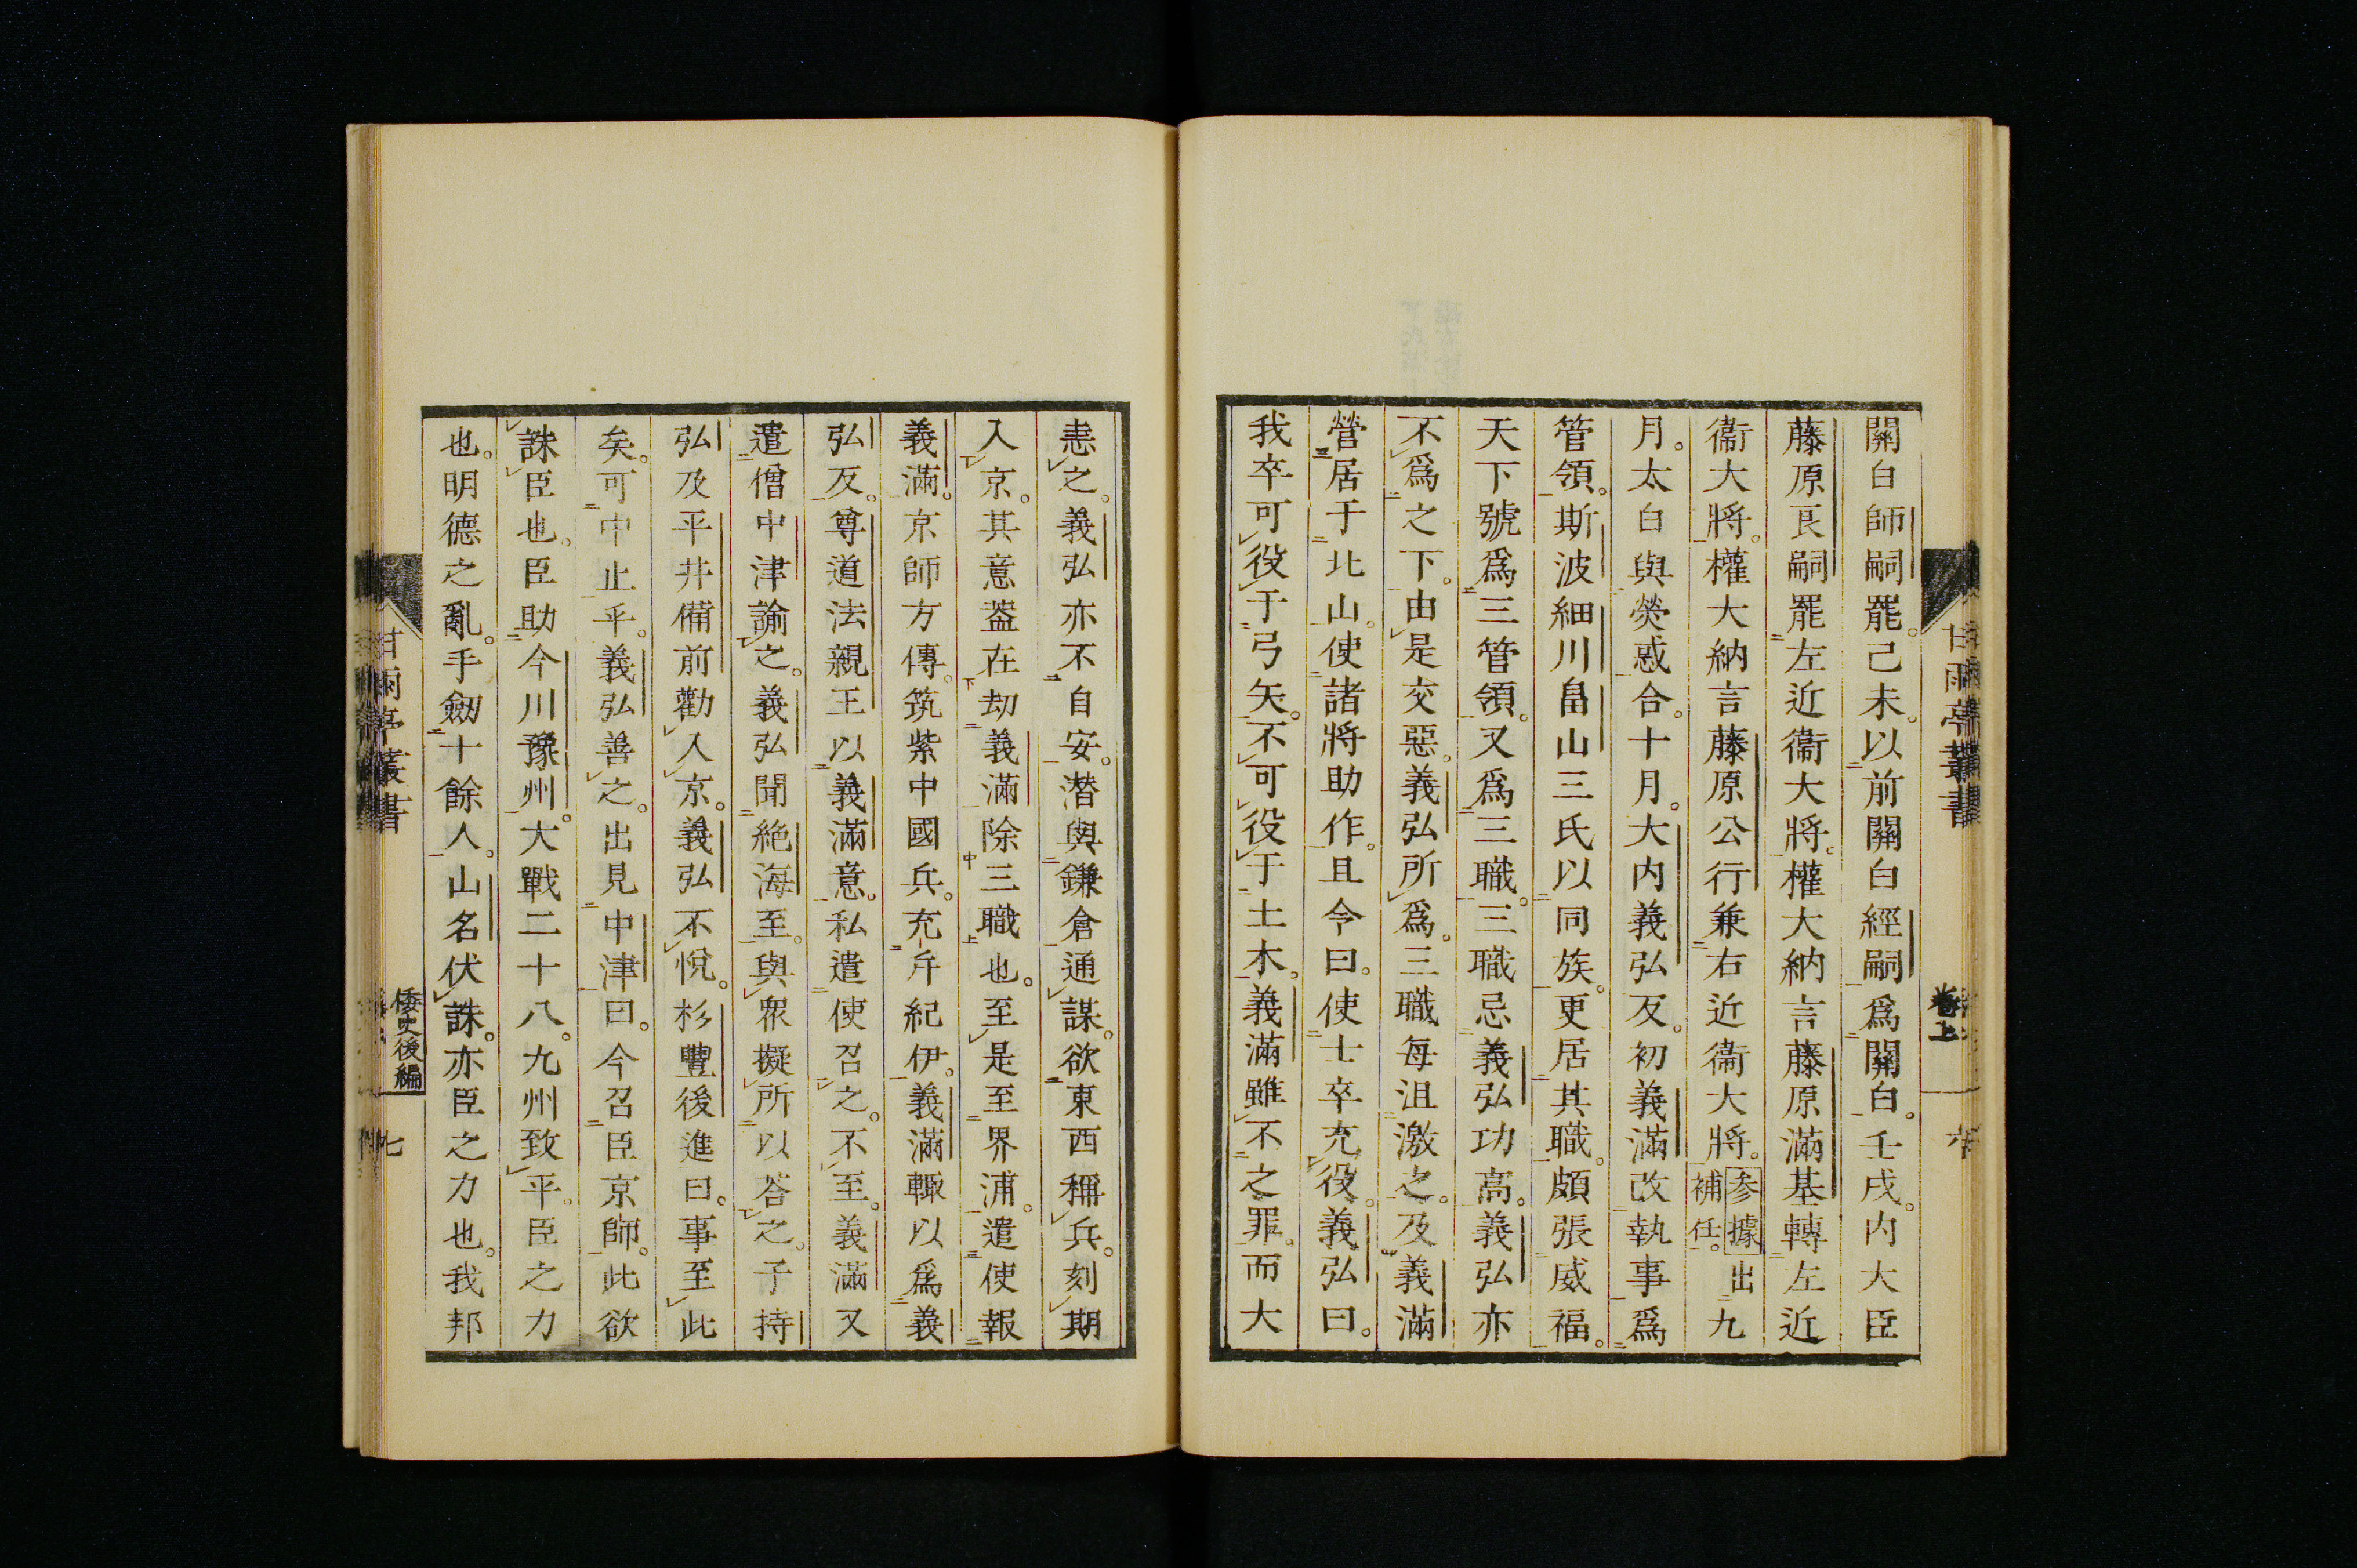 關白師嗣罷。己未。以前關白經嗣爲關白。壬戌。内大臣
藤原良嗣罷左近衞大將。權大納言藤原滿基轉左近
衞大將。權大納言藤原公行兼右近衞大將。参據補任。出九
月。太白與熒惑合。十月。大内義弘反。初義滿改執事爲
管領。斯波細川畠山三氏以同族。更居其職。頗張威福。
天下號爲三管領。又爲三職。三職忌義弘功高。義弘亦
不爲之下。由是交惡。義弘所爲。三職每沮激之。及義滿
營居于北山。使諸將助作。且令曰。使士卒充役。義弘曰。
我卒可役于弓矢。不可役于土木。義滿雖不之罪。而大
甘雨亭叢書
卷上
六
恚之。義弘亦不自安。潛與鎌倉通謀。欲東西稱兵。刻期
入京。其意葢在劫義滿除三職也。至是至界浦。遣使報
義滿。京師方傳。筑紫中國兵。充斥紀伊。義滿輙以爲義
弘反。尊道法親王以義滿意。私遣使召之。不至。義滿又
遣僧中津諭之。義弘聞絶海至。與衆擬所以荅之。子持
弘及平井備前勸入京。義弘不悅。杉豐後進曰。事至此
矣。可中止乎。義弘善之。出見中津曰。今召臣京師。此欲
誅臣也。臣助今川豫州。大戰二十八。九州致平。臣之力
也。明德之亂。手劒十餘人。山名伏誅。亦臣之力也。我邦
甘雨亭叢書
倭史後編
七